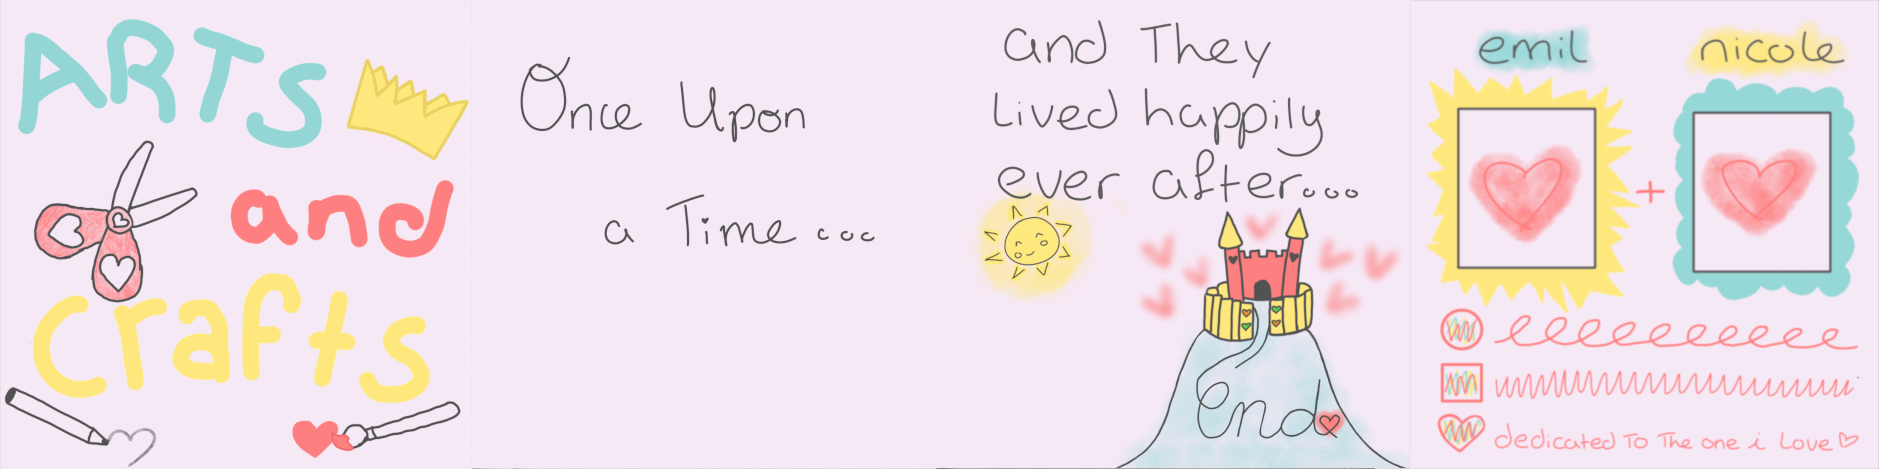 ARTS
and
crafts
Once Upon
a Time...
and They
Lived happily
ever after...
End
emil
nicole
dedicated To The one i Love